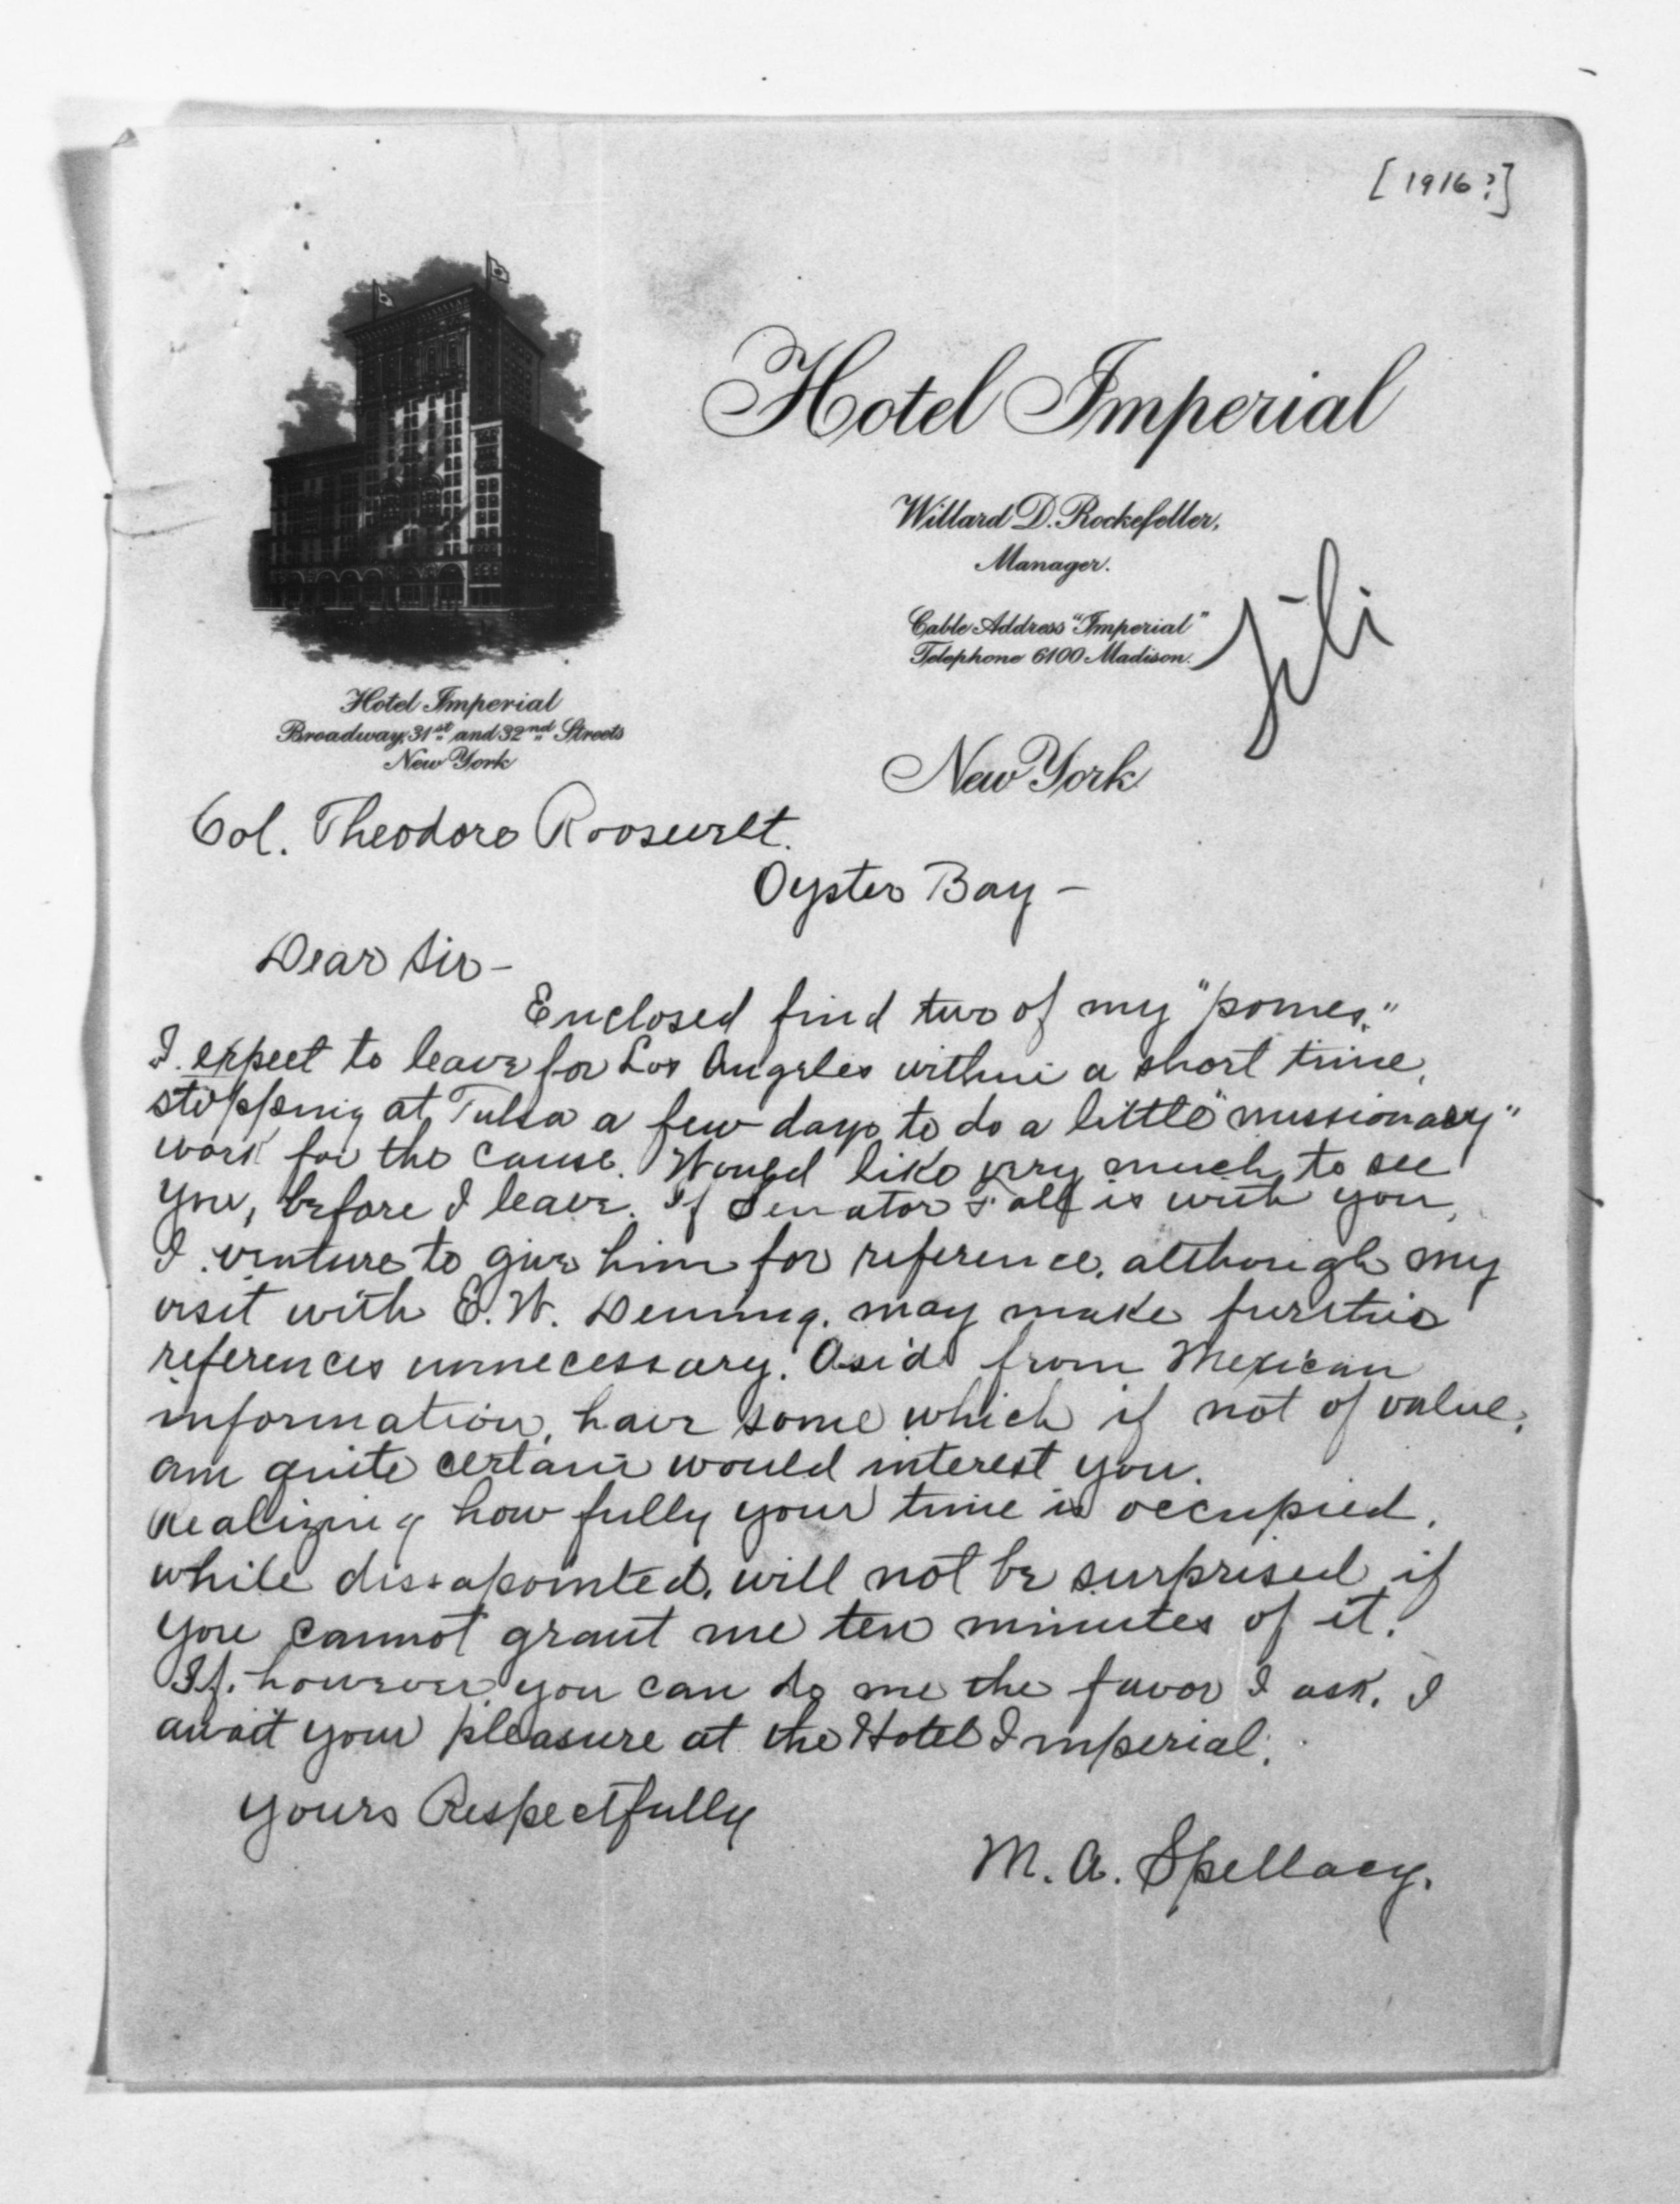 [1916?]
Hotel Imperial
Willard D. Rockefeller,
Manager.
Cable Address "Imperial"
Telephone 6100 Madison.
Hotel Imperial
Broadway, 31st and 32nd Streets
New York
New York
Col. Theodore Roosevelt.
Oyster Bay –
Dear Sir –
Enclosed find two of my "pomes."
I expect to leave for Los Angeles within a short time,
stopping at Tulsa a few days to do a little "missionary"
work for the cause. Would like very much to see
you, before I leave. If Senator Fall is with you,
I venture to give him for reference, although my
visit with E. W. Deming. may make further
references unnecessary. Aside from Mexican
information, have some which if not of value,
am quite certain would interest you.
Realizing how fully your time is occupied,
while dissapointed, will not be surprised if
you cannot grant me ten minutes of it.
If, however, you can do me the favor I ask, I
await your pleasure at the Hotel Imperial.
Yours Respectfully
M. A. Spellacy.